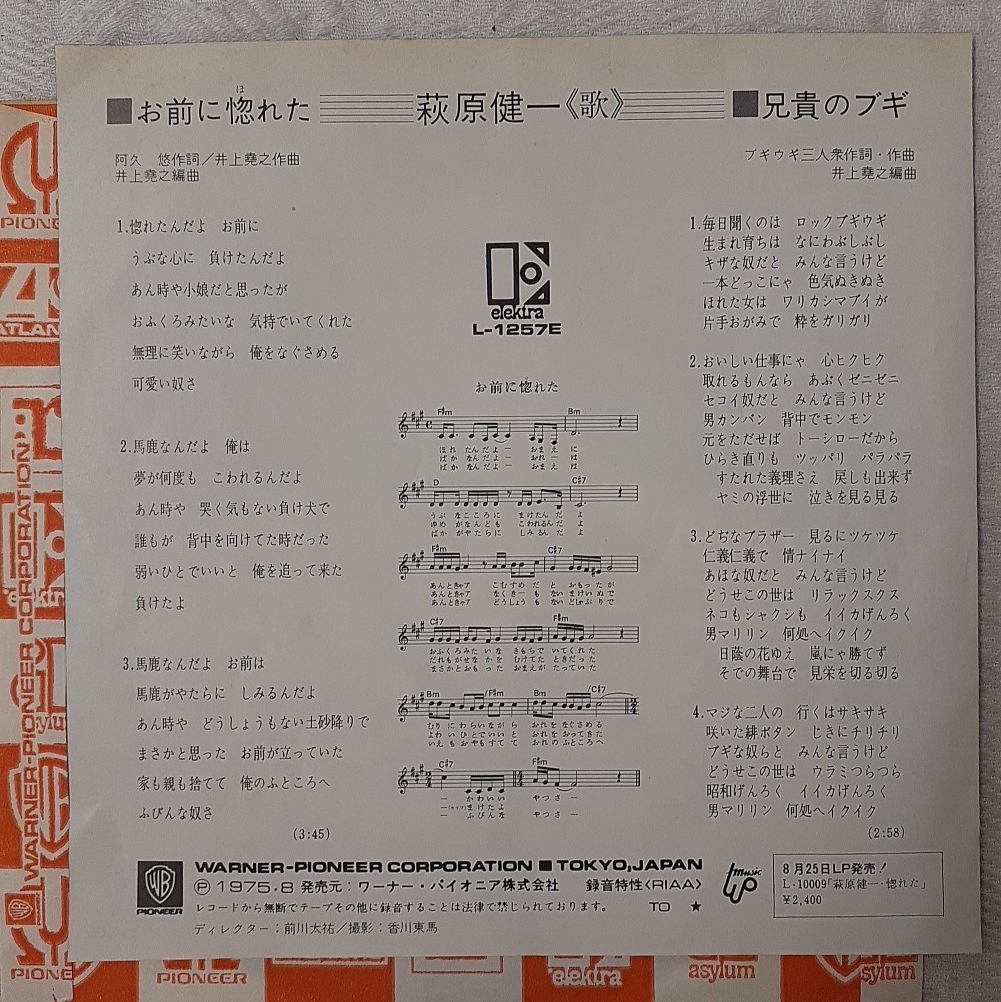 ■お前に惚れた
ほ
萩原健一《歌》
■兄貴のブギ
阿久 悠作詞／井上堯之作曲
井上堯之編曲
ブギウギ三人衆作詞・作曲
井上堯之編曲
1.惚れたんだよ お前に
うぶな心に 負けたんだよ
あん時や小娘だと思ったが
おふくろみたいな 気持でいてくれた
無理に笑いながら 俺をなぐさめる
可愛い奴さ
2.馬鹿なんだよ 俺は
夢が何度も こわれるんだよ
あん時や 哭く気もない負け犬で
誰もが 背中を向けてた時だった
弱いひとでいいと 俺を追って来た
負けたよ
3.馬鹿なんだよ お前は
馬鹿がやたらに しみるんだよ
あん時や どうしょうもない土砂降りで
まさかと思った お前が立っていた
家も親も捨てて 俺のふところへ
ふびんな奴さ
(3:45)
elektra
L-1257E
お前に惚れた
F♯m Bm
ほれ たんだよー おまえ に
ばか なんだよー おれー は
ばか なんだよー おまえ は
D C♯7
うぶ なこころに まけたん だ よ
ゆめ がなんども こわれるんだ よ
ばか がやたらに しみるん だ よ
F♯m C♯7
あんときゃア こむすめ だ と おもった が
あんときゃア なく きー も ない まけいぬ で
あんときゃア どうしょう も ない どしゃぶり で
C♯7 F♯m
おふくろみた いな きもちで いてくれた
だれもがせな かを むけてた ときだった
まさかとおも った おまえが たっていた
Bm /F♯m Bm /C♯7
むり に わらいなが ら おれを なぐさめる
よわ い ひとでいい と おれを おってきた
いえ も おやもすて て おれの ふところへ
C♯7 F♯m
ー かわいい やつ さ ー
まけたよ
ー ふびんな やつ さ ー
1.毎日聞くのは ロックブギウギ
生まれ育ちは なにわぶしぶし
キザな奴だと みんな言うけど
一本どっこにゃ 色気ぬきぬき
ほれた女は ワリカシマブイが
片手おがみで 粋をガリガリ
2.おいしい仕事にゃ 心ヒクヒク
取れるもんなら あぶくゼニゼニ
セコイ奴だと みんな言うけど
男カンバン 背中でモンモン
元をただせば トーシローだから
ひらき直りも ツッパリ パラパラ
すたれた義理さえ 戻しも出来ず
ヤミの浮世に 泣きを見る見る
3.どぢなブラザー 見るにツケツケ
仁義仁義で 情ナイナイ
あほな奴だと みんな言うけど
どうせこの世は リラックスクス
ネコもシャクシも イイカげんろく
男マリリン 何処へイクイク
日蔭の花ゆえ 嵐にゃ勝てず
そでの舞台で 見栄を切る切る
4.マジな二人の 行くはサキサキ
咲いた緋ボタン じきにチリチリ
ブギな奴らと みんな言うけど
どうせこの世は ウラミつらつら
昭和げんろく イイカげんろく
男マリリン 何処へイクイク
(2:58)
WB
PIONEER
WARNER-PIONEER CORPORATION ■ TOKYO, JAPAN
Ⓟ1975.8 発売元：ワーナー・パイオニア株式会社 録音特性〈RIAA〉
レコードから無断でテープその他に録音することは法律で禁じられております。 TO ★
ディレクター：前川太祐／撮影：香川東馬
music up
8月25日LP発売！
L-10009「萩原健一・惚れた」
¥2,400
PIONEER
ATLAN
WARNER-PIONEER CORPORATION
elektra
asylum
PIONE
PIONEER
elektra
asylum